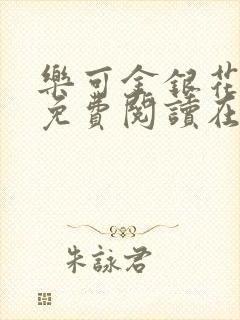 樂可金銀花
免費閱讀在
朱詠君